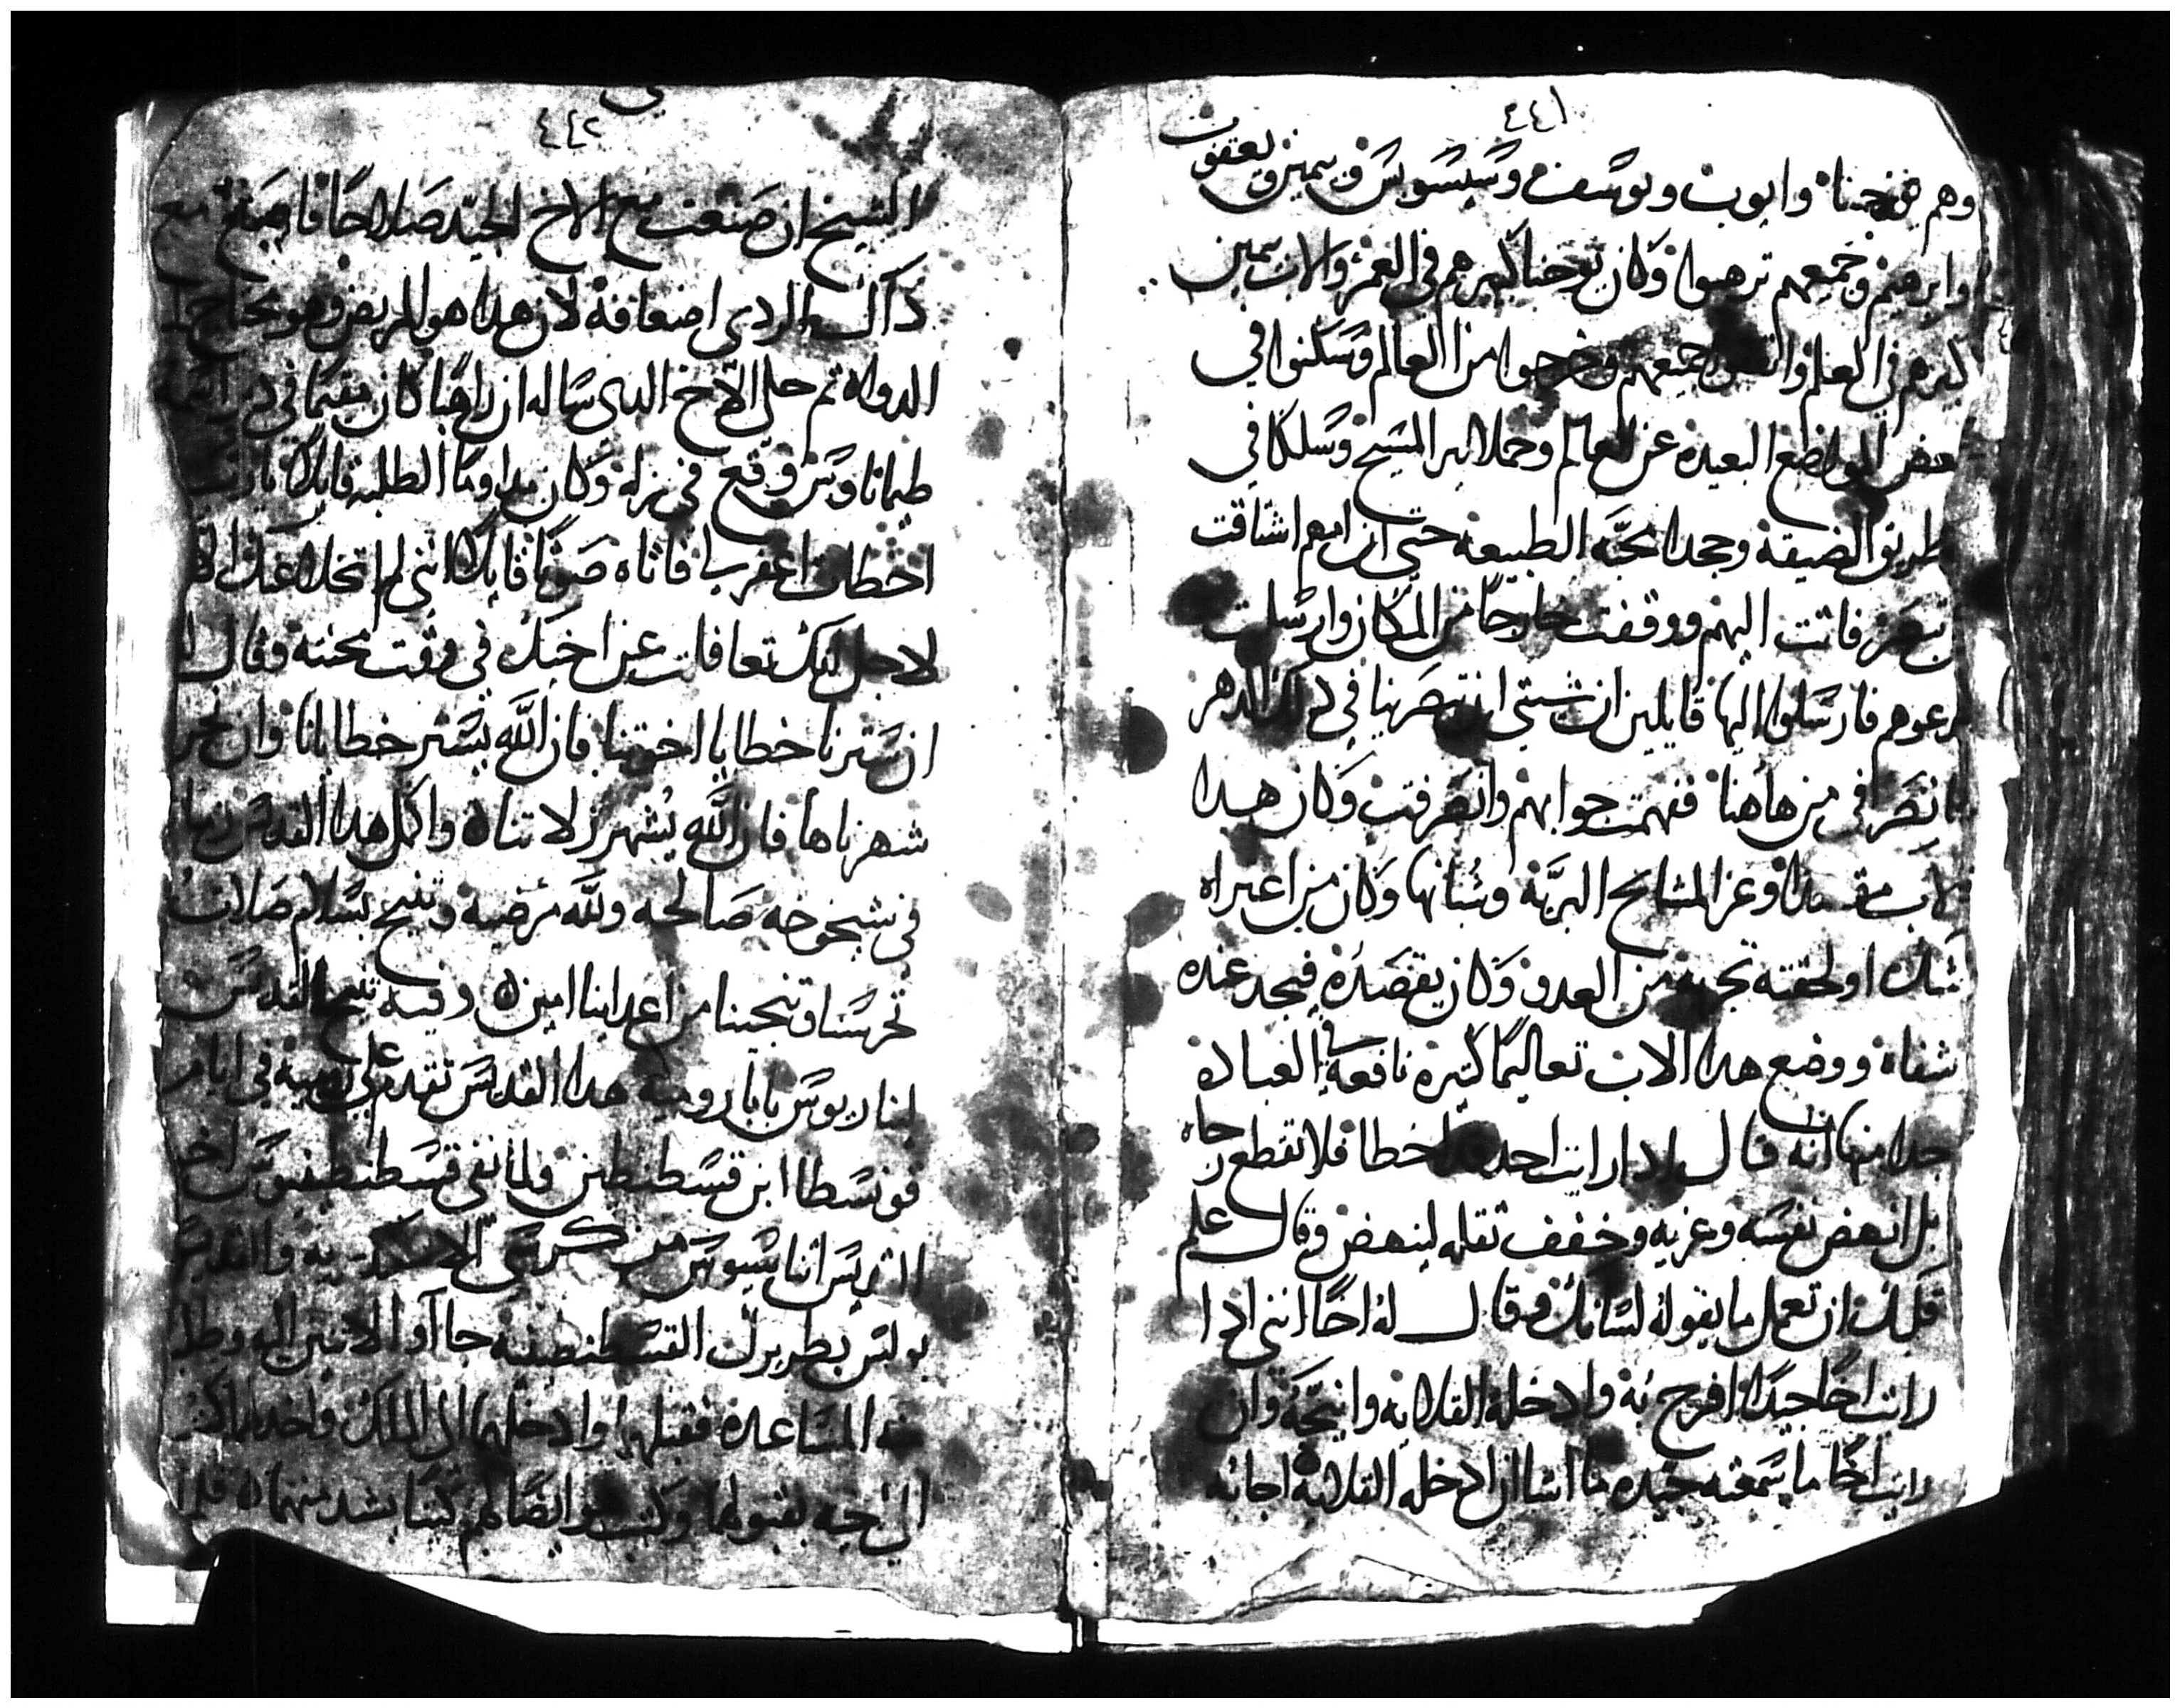 ٤٤١
وهم يوحنا وايوب ويوسف وسيسوس وبيمين ويعقوب
وابرهيم وجميعهم ترهبوا وكان يوحنا كبيرهم في العمر والاب بيمين
كبيرهم في العلم جميعهم وخرجوا من العالم وسكنوا في
بعض المواضع البعيده عن العالم وحملا نير المسيح وسلكا في
طريق الضيقة وجحدا محبة الطبيعه حتي ان امهم اشتاقت
تبصر فاتت اليهم ووقفت خارجا من المكان وارسلت
تدعوهم فارسلوا اليها قايلين ان شيتي ان تبصرينا في ذلك الدهر
انصرفي من هاهنا ففهمت جوابهم وانصرفت وكان هدا
الاب وعز المشايخ البرية وشبانها وكان من اعتراه
شك او لحقته تجربه من العدو وكان يقصده فيجد عنده
شفاه ووضع هدا الاب تعاليما كتيره نافعة في العباده
جدا منها انه قال ادا رايت احد قد اخطا فلا تقطع رجاه
بل انهض نفسه وعزيه وخفف تقله لينهض وقال علم
قلبك ان تعمل ما يقوله لسانك وقال له اخا انني ادا
رايت اخا جيدا افرح به وادخله القلايه وانيحة وان
رايت اخا ما سمعته جيده ما اشا ان ادخله القلاية اجابه
٤٤٢
الشيخ ان صنعت مع الاخ الجيد صلاحا فاصنع مع
ذاك الردي اضعافه لان هدا هو المريض وهو محتاج الى
الدواه تم حلي الاخ الدي ساله ان راهبا كان مقيما في دير اسمه
طيماناوس وقع في زله وكان مداوما الطلبه قايلا يارب
اخطات اغفر لي فاتاه صوتا قايلا انني لم اتخلا عنك الا
لاجل انك تغافلت عن اخيك في وقت محنته وقال
ان سترنا خطايا اخوتنا فان الله يستر خطايانا وان نحن
شهرناها فان الله يشهر زلاتناه واكمل هدا القديس
في شيخوخه صالحه ولله مرضيه وتنيح بسلام صلاته
تحرسنا وتنجينا من اعداينا امين وفيه تنيح القديس
ليناريوس بابا روميه هدا القديس تقدم علي روميه في ايام
قونسطا ابن قسطنطين ولما نفي قسطنطينوس اخو
اثناسيوس من كرسي الاسكندريه والقديس
بولس بطريرك القسطنطينيه جاآوا الاتنين اليه وطلبا
منه المساعده فقبلهم وادخلهما الى الملك واخد اكتب
الى بقبولها وكتب هو ايضا لهم كتبا يشد منهماه فلما